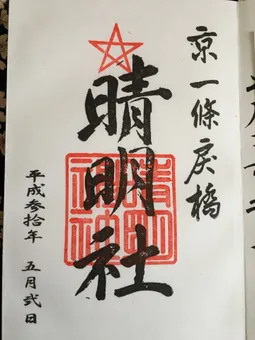 京一條戻橋
晴明社
平成参拾年 五月弐日